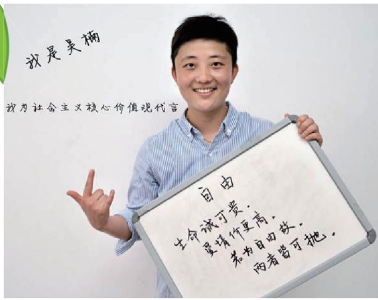 我是吴楠
我为社会主义核心价值观代言
自由
生命诚可贵，
爱情价更高，
若为自由故，
两者皆可抛。